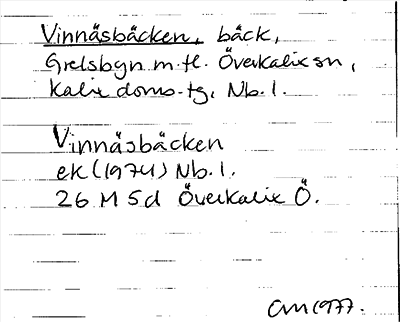 Vinnäsbäcken, bäck,
Grelsbyn m.fl. Överkalix sn,
Kalix doms.tg, Nb.l.
Vinnäsbäcken
ek (1974) Nb.l.
26 M 5d Överkalix Ö.
CM 1977.